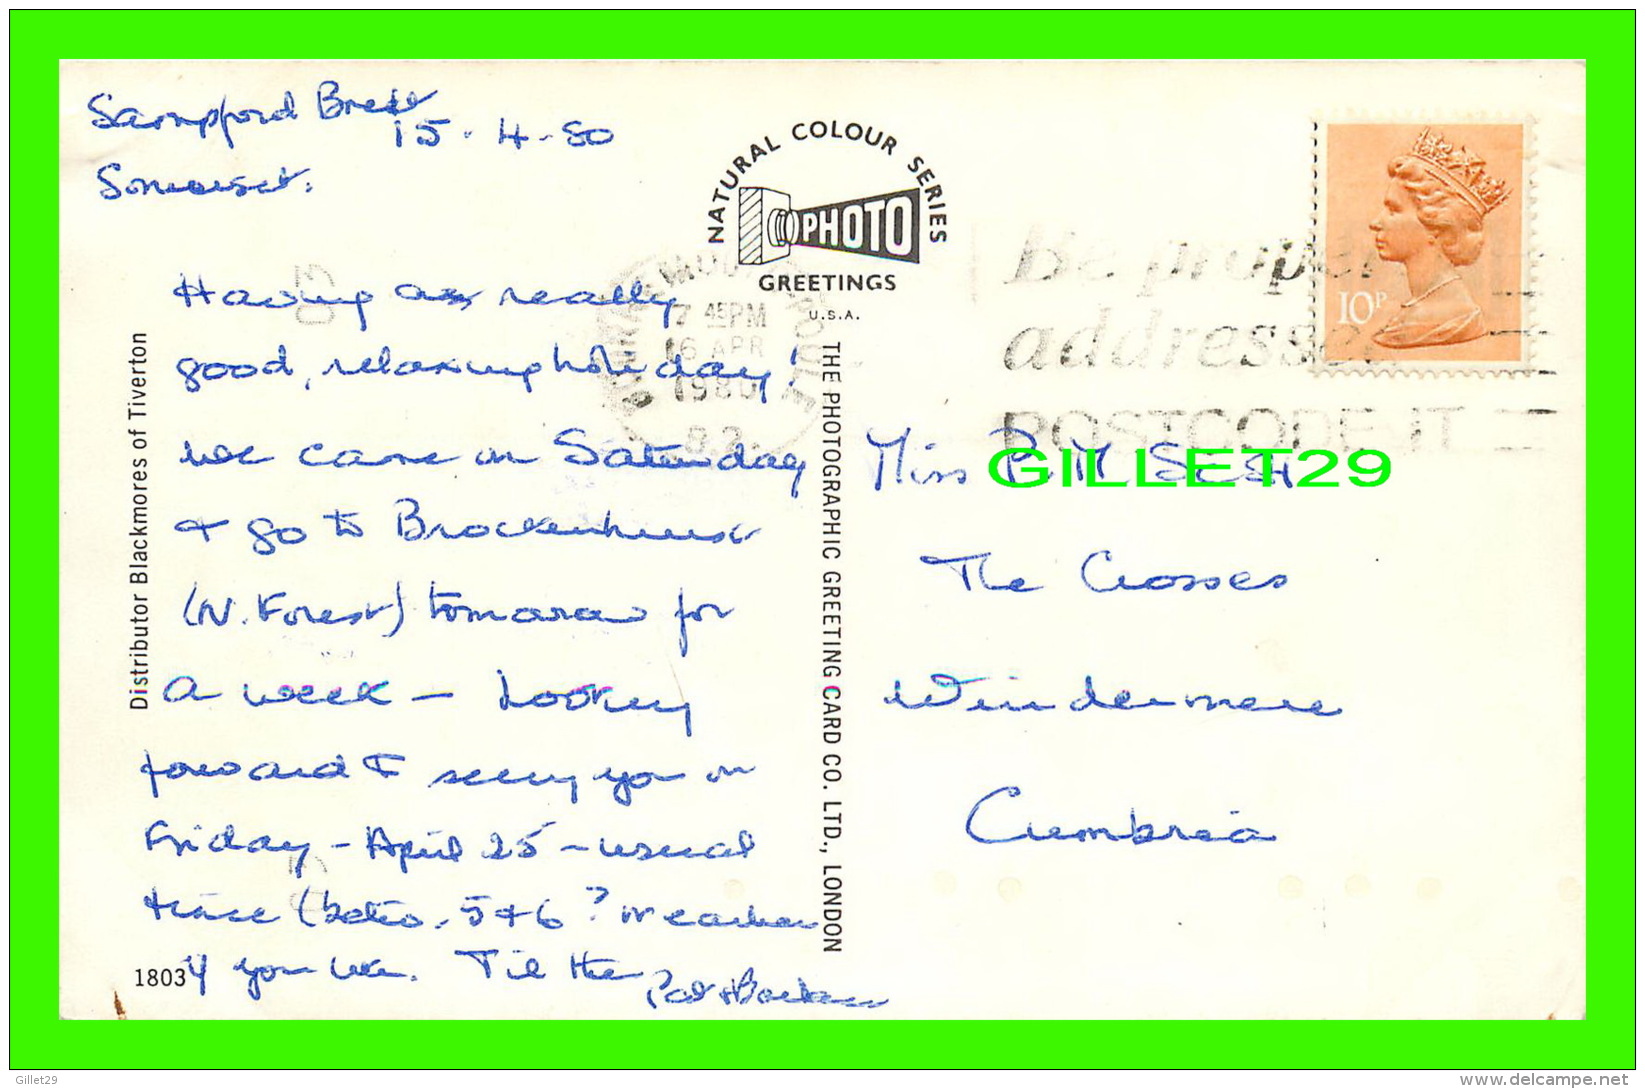 Sampford Brett
15.4.80
Somerset.
Having a really
good, relaxing holiday!
We came on Saturday
+ go to Brockenhurst
(N. Forest) tomorrow for
a week – Looking
forward to seeing you on
Friday – April 25 – usual
time (betw. 5+6? or earlier
if you like. Til then
Pat + Barbara
Distributor Blackmores of Tiverton
1803
NATURAL COLOUR SERIES
PHOTO
GREETINGS
U.S.A.
THE PHOTOGRAPHIC GREETING CARD CO. LTD., LONDON
7 45PM
16 APR
1980
Be properly
addressed
POSTCODE IT
10P
Miss P. M
GILLET29
The Crosses
Windermere
Cumbria
Gillet29
www.delcampe.net